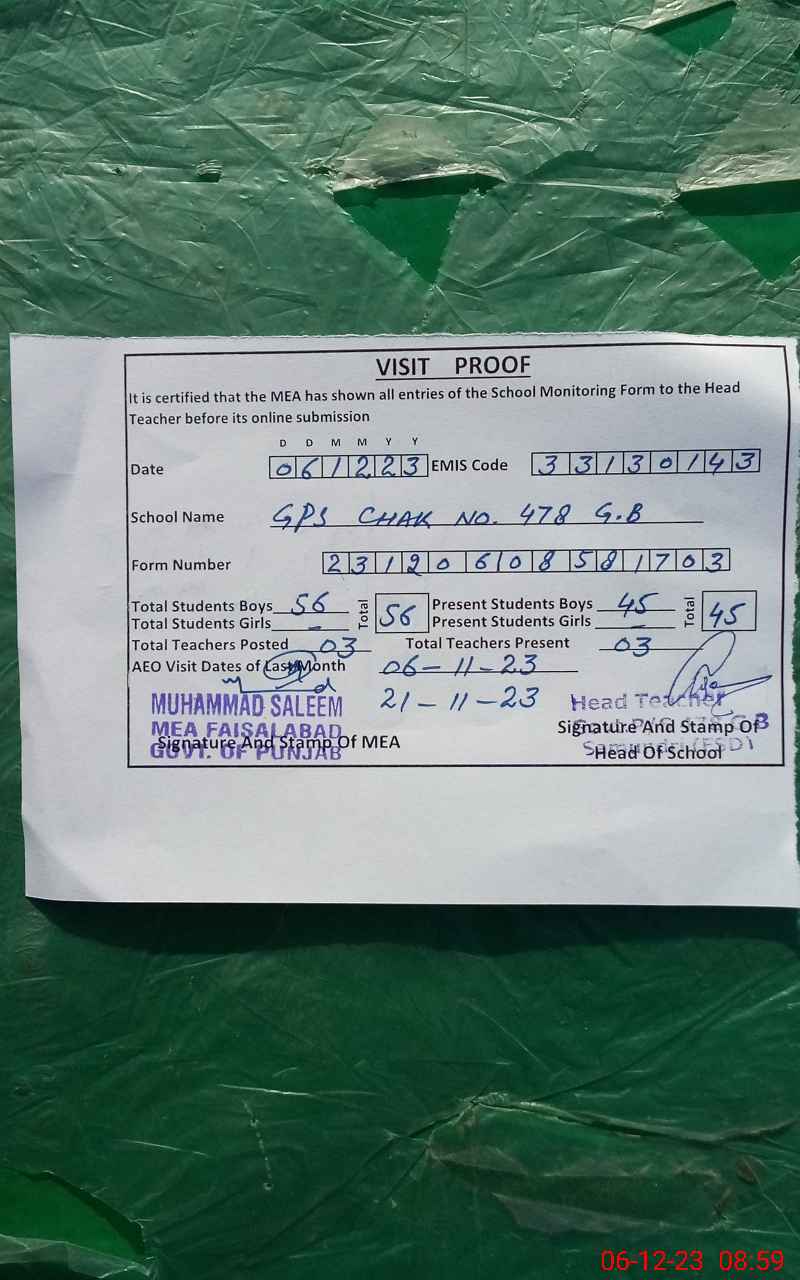 VISIT PROOF
It is certified that the MEA has shown all entries of the School Monitoring Form to the Head
Teacher before its online submission
D D M M Y Y
Date 061223 EMIS Code 33130143
School Name GPS CHAK NO. 478 G.B
Form Number 23120608581703
Total Students Boys 56 Total 56 Present Students Boys 45 Total 45
Total Students Girls - Present Students Girls -
Total Teachers Posted 03 Total Teachers Present 03
AEO Visit Dates of Last Month 06-11-23
21-11-23
MUHAMMAD SALEEM
MEA FAISALABAD
GOVT. OF PUNJAB
Signature And Stamp Of MEA
Head Teacher
478 G.B
Samundri (FSD)
Signature And Stamp Of
Head Of School
06-12-23 08:59